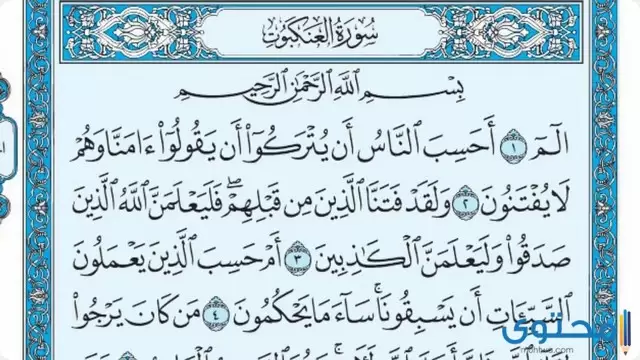 سُورَةُ العَنكَبُوت
بِسْمِ اللَّهِ الرَّحْمَٰنِ الرَّحِيمِ
الٓمٓ ١ أَحَسِبَ النَّاسُ أَن يُتْرَكُوٓا۟ أَن يَقُولُوٓا۟ ءَامَنَّا وَهُمْ
لَا يُفْتَنُونَ ٢ وَلَقَدْ فَتَنَّا الَّذِينَ مِن قَبْلِهِمْ ۖ فَلَيَعْلَمَنَّ اللَّهُ الَّذِينَ
صَدَقُوا۟ وَلَيَعْلَمَنَّ الْكَٰذِبِينَ ٣ أَمْ حَسِبَ الَّذِينَ يَعْمَلُونَ
السَّيِّـَٔاتِ أَن يَسْبِقُونَا ۚ سَآءَ مَا يَحْكُمُونَ ٤ مَن كَانَ يَرْجُوا۟
محتوى
muhtwa.com